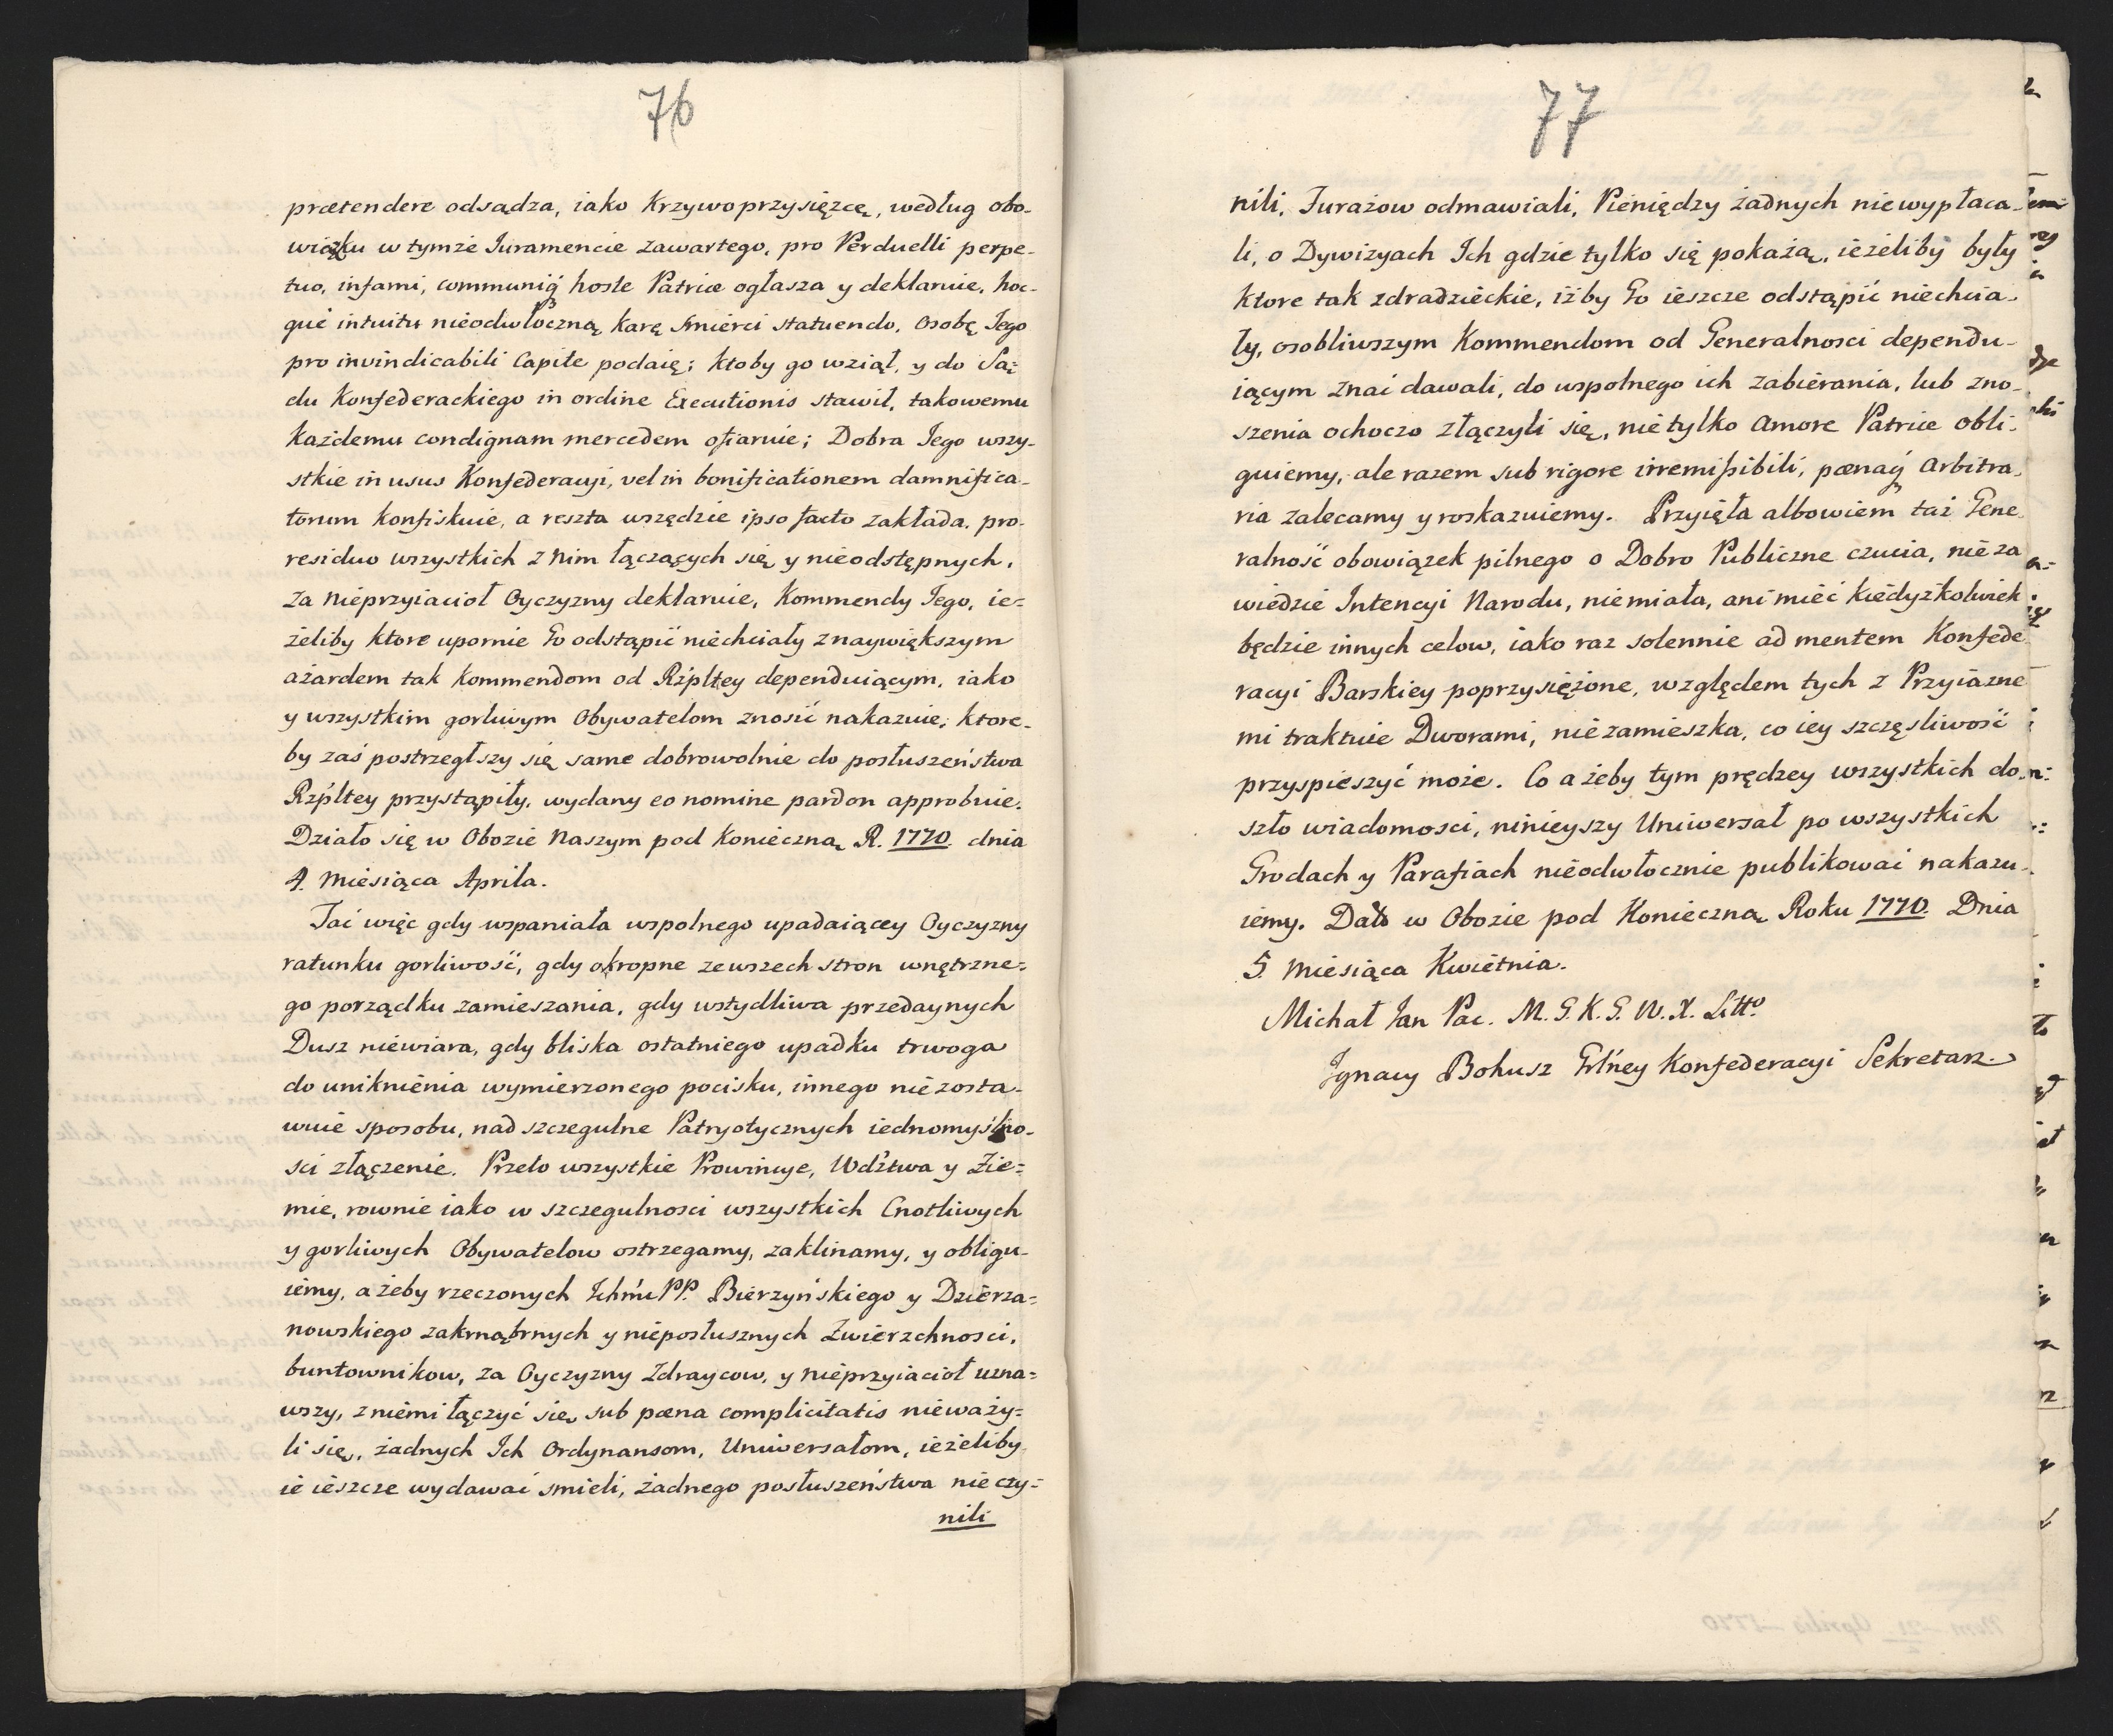 76
prætendere odsądza, iako Krzywoprzysięzcę, według obo-
wiązku w tymże Juramencie zawartego, pro Perduelli perpe-
tuo, infami, communiq́ hoste Patriæ ogłasza y deklaruie, hoc-
que intuitu nieodwłoczną Karę Smierci statuendo, Osobę Jego
pro invindicabili Capite podaię; ktoby go wziął, y do Są-
du Konfederackiego in ordine Executionis stawił, takowemu
Każdemu condignam mercedem ofiaruie; Dobra Jego wszy-
stkie in usus Konfederacyi, vel in bonificationem damnifica-
torum konfiskuie, a reszta wszędzie ipso facto zakłada, pro
residuo wszystkich z Nim łączących się y nieodstępnych,
za Nieprzyiacioł Oyczyzny deklaruie, Kommendy Jego, ie-
żeliby ktore upornie Go odstąpić niechciały z naywiększym
ażardem tak Kommendom od Rzpltey dependuiącym, iako
y wszystkim gorliwym Obywatelom znosić nakazuie, ktore-
by zaś postrzegłszy się same dobrowolnie do posłuszeństwa
Rzpltey przystąpiły, wydany eo nomine pardon approbuie.
Działo się w Obozie Naszym pod Konieczną R. 1770. dnia
4. Miesiąca Aprila.
Tać więc gdy wspaniała wspolnego upadaiącey Oyczyzny
ratunku gorliwość, gdy okropne ze wszech stron wnętrzne-
go porządku zamieszania, gdy wstydliwa przedaynych
Dusz niewiara, gdy bliska ostatniego upadku trwoga
do uniknienia wymierzonego pocisku, innego nie zosta-
wuie sposobu, nad szczegulne Patryotycznych iednomyślno-
sci złączenie. Przeto wszystkie Prowincye, Wdztwa y Zie-
mie, rownie iako w szczegulnosci wszystkich Cnotliwych
y gorliwych Obywatelow ostrzegamy, zaklinamy, y obligu-
iemy, ażeby rzeczonych Ichmć PP. Bierzyńskiego y Dzierza-
nowskiego zakmąbrnych y nieposłusznych Zwierzchnosci,
buntownikow, za Oyczyzny Zdraycow, y Nieprzyiacioł uzna-
wszy, z niemi łączyć się sub pœna complicitatis nieważy-
li się, żadnych Ich Ordynansom, Uniwersałom, ieżeliby
ie ieszcze wydawać smieli, żadnego posłuszeństwa nieczy-
nili
77
nili, Furażow odmawiali, Pieniędzy żadnych niewypłaca-
li, o Dywizyach Ich gdzie tylko się pokażą, ieżeliby były
ktore tak zdradzieckie, iżby Go ieszcze odstąpić niechcia-
ły, osobliwszym Kommendom od Generalnosci dependu-
iącym znać dawali, do wspolnego ich zabierania, lub zno-
szenia ochoczo złączyli się, nietylko Amore Patriæ obli-
guiemy, ale razem sub rigore irremißibili, pœnaq́ Arbitra-
ria zalecamy y roskazuiemy. Przyięła albowiem taż Gene
ralność obowiązek pilnego o Dobro Publiczne czucia, nie za
wiedzie Intencyi Narodu, niemiała, ani mieć kiedyżkolwiek
będzie innych celow, iako raz solennie ad mentem Konfede
racyi Barskiey poprzysiężone, względem tych z Przyiazne
mi traktuie Dworami, niezamieszka, co iey szczęsliwość
przyspieszyć może. Co ażeby tym prędzey wszystkich do-
szło wiadomosci, ninieyszy Uniwersał po wszystkich
Grodach y Parafiach nieodwłocznie publikować nakazu-
iemy. Dało w Obozie pod Konieczną Roku 1770. Dnia
5. Miesiąca Kwietnia.
Michał Jan Pac. M. G. K. G. W. X. Litto.
Ignacy Bohusz Grlney Konfederacyi Sekretarz.